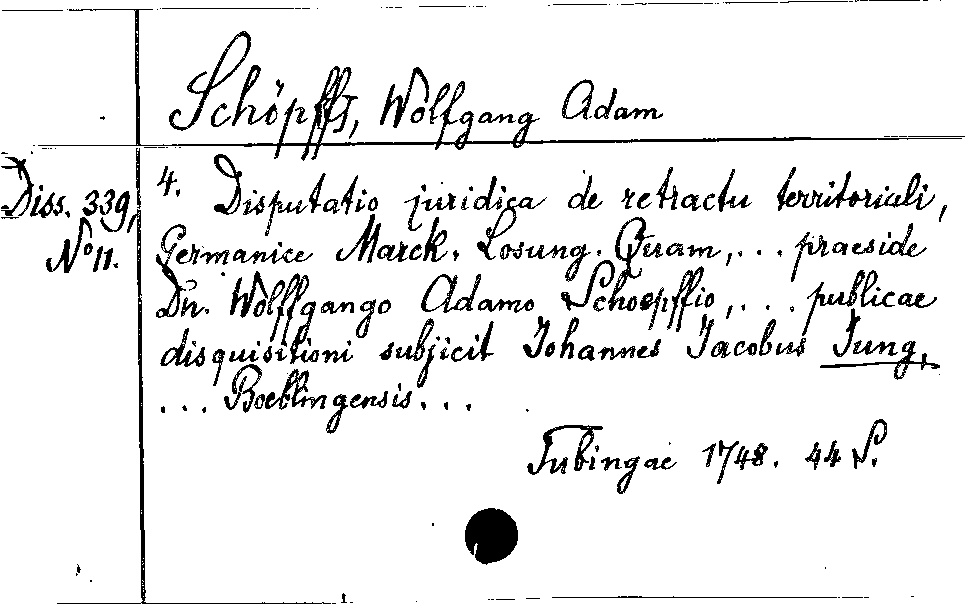 Schöpff, Wolfgang Adam
Diss. 339,
No 11.
4. Disputatio juridica de retractu territoriali,
Germanice Marck. Losung. Quam, ... praeside
Dn. Wolffgango Adamo Schoepffio, ... publicae
disquisitioni subjicit Johannes Jacobus Jung,
... Boeblingensis ...
Tubingae 1748. 44 S.